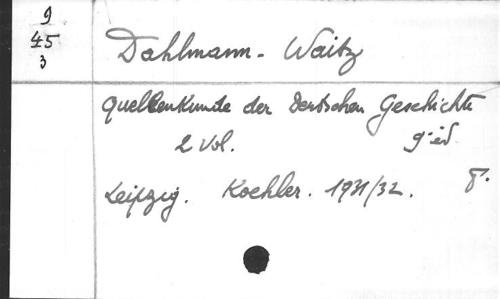 9
45
3
Dahlmann - Waitz
Quellenkunde der Deutschen Geschichte
2 Vol. 9e éd.
Leipzig. Koehler. 1931/32. 8°.